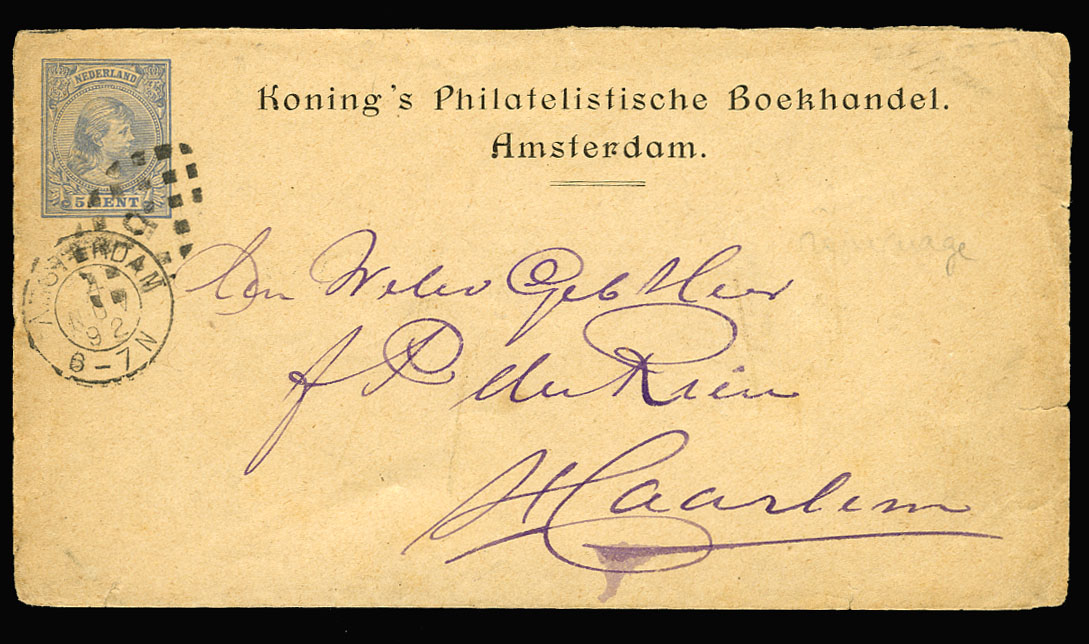 NEDERLAND
5 CENT
Koning's Philatelistische Boekhandel.
Amsterdam.
5
AMSTERDAM
92
6-7N
Den Weled Geb Heer
P de
Haarlem